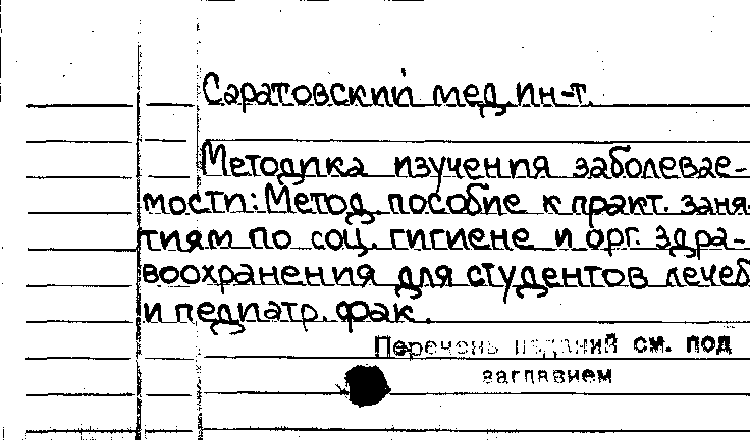 Саратовский мед. ин-т.
Методика изучения заболевае-
мости: Метод. пособие к практ. заня-
тиям по соц. гигиене и орг. здра-
воохранения для студентов лечеб
и педиатр. фак.
Перечень изданий см. под
заглавием